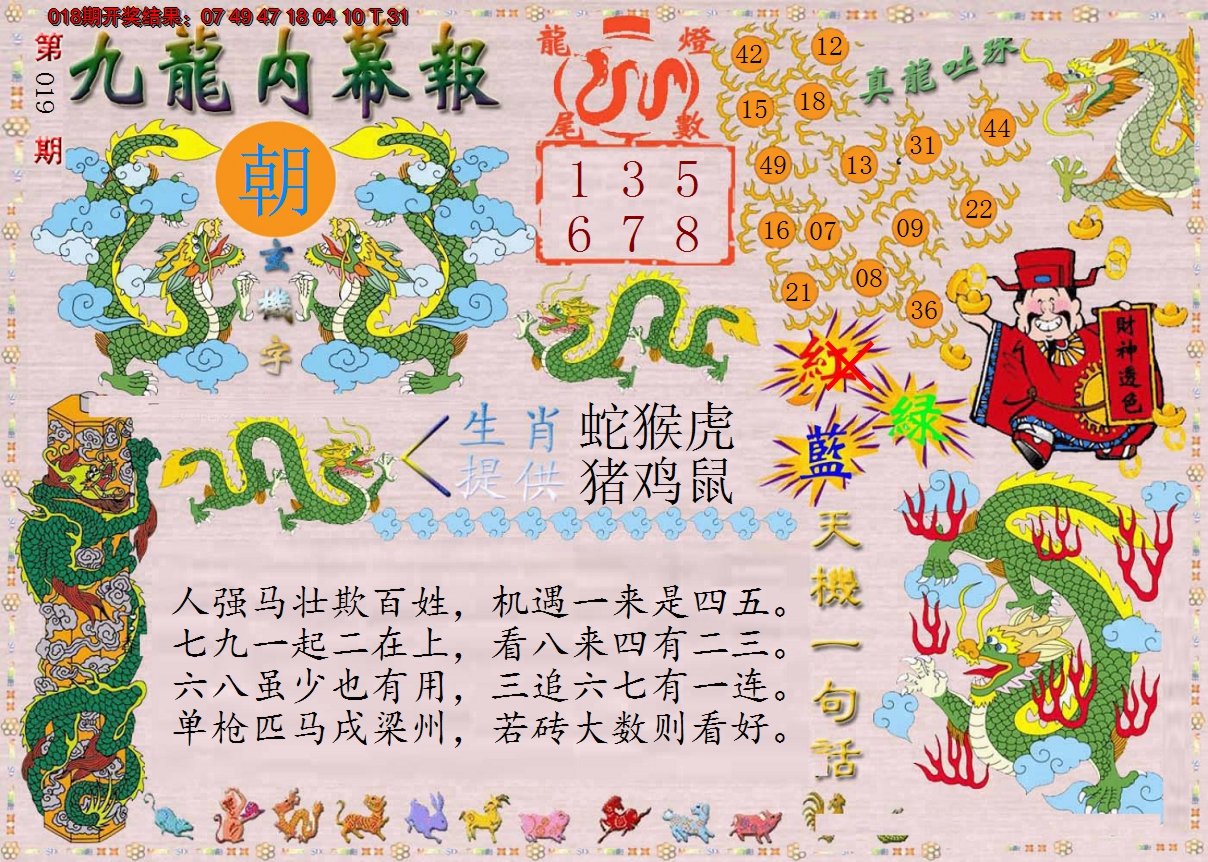 018期开奖结果：07 49 47 18 04 10 T 31
第019期
九龍内幕報
朝
玄機字
龍燈尾數
1 3 5
6 7 8
真龍吐珠
42 12
15 18
49 13 31 44
16 07 09 22
21 08 36
財神透色
紅
綠
藍
生肖提供
蛇猴虎
猪鸡鼠
天機一句话
人强马壮欺百姓，机遇一来是四五。
七九一起二在上，看八来四有二三。
六八虽少也有用，三追六七有一连。
单枪匹马戍梁州，若砖大数则看好。